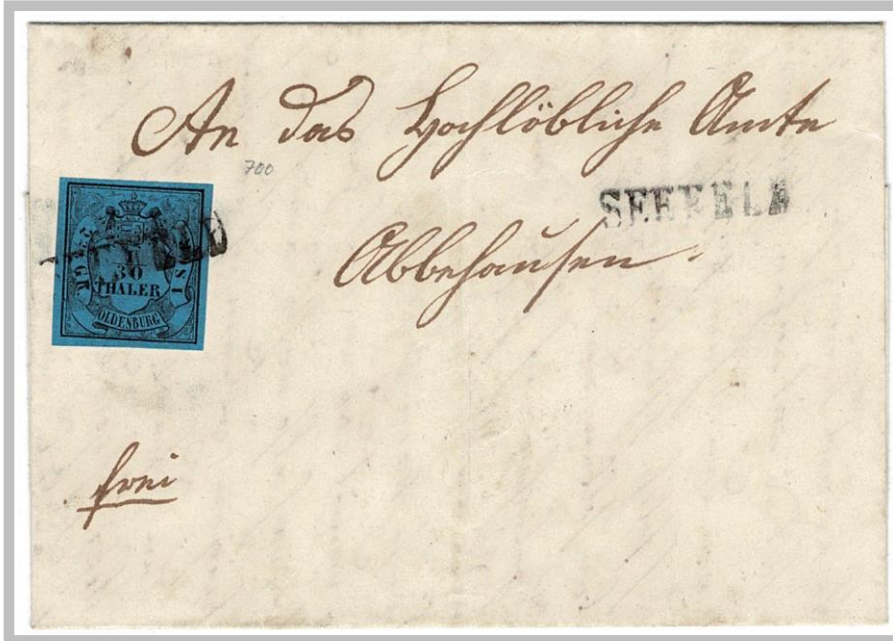 An das Hochlöbliche Amte
700
SEEFELD
Abbehausen.
1
30
THALER
OLDENBURG
frei